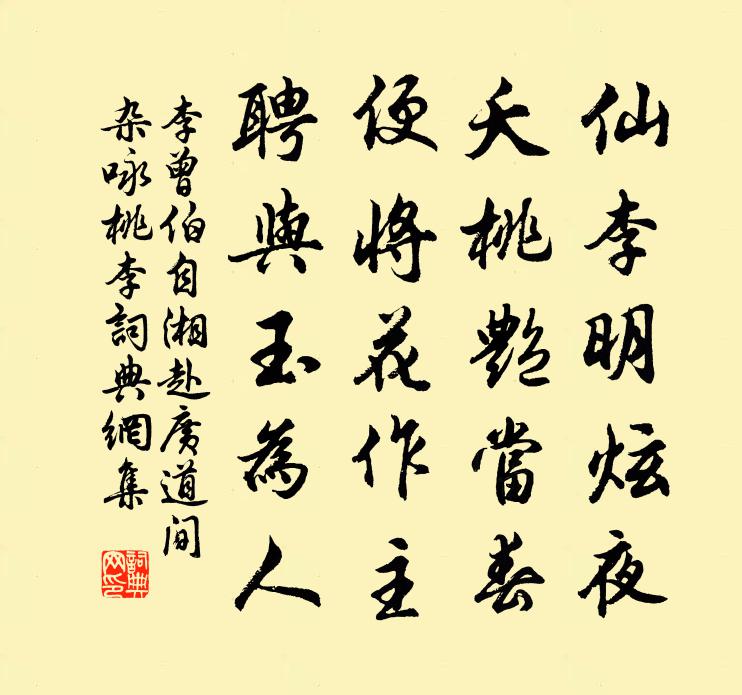 仙李明炫夜
夭桃艷當春
便將花作主
聘與玉為人
李曾伯自湘赴廣道间
杂咏桃李詞典網集
詞典網印